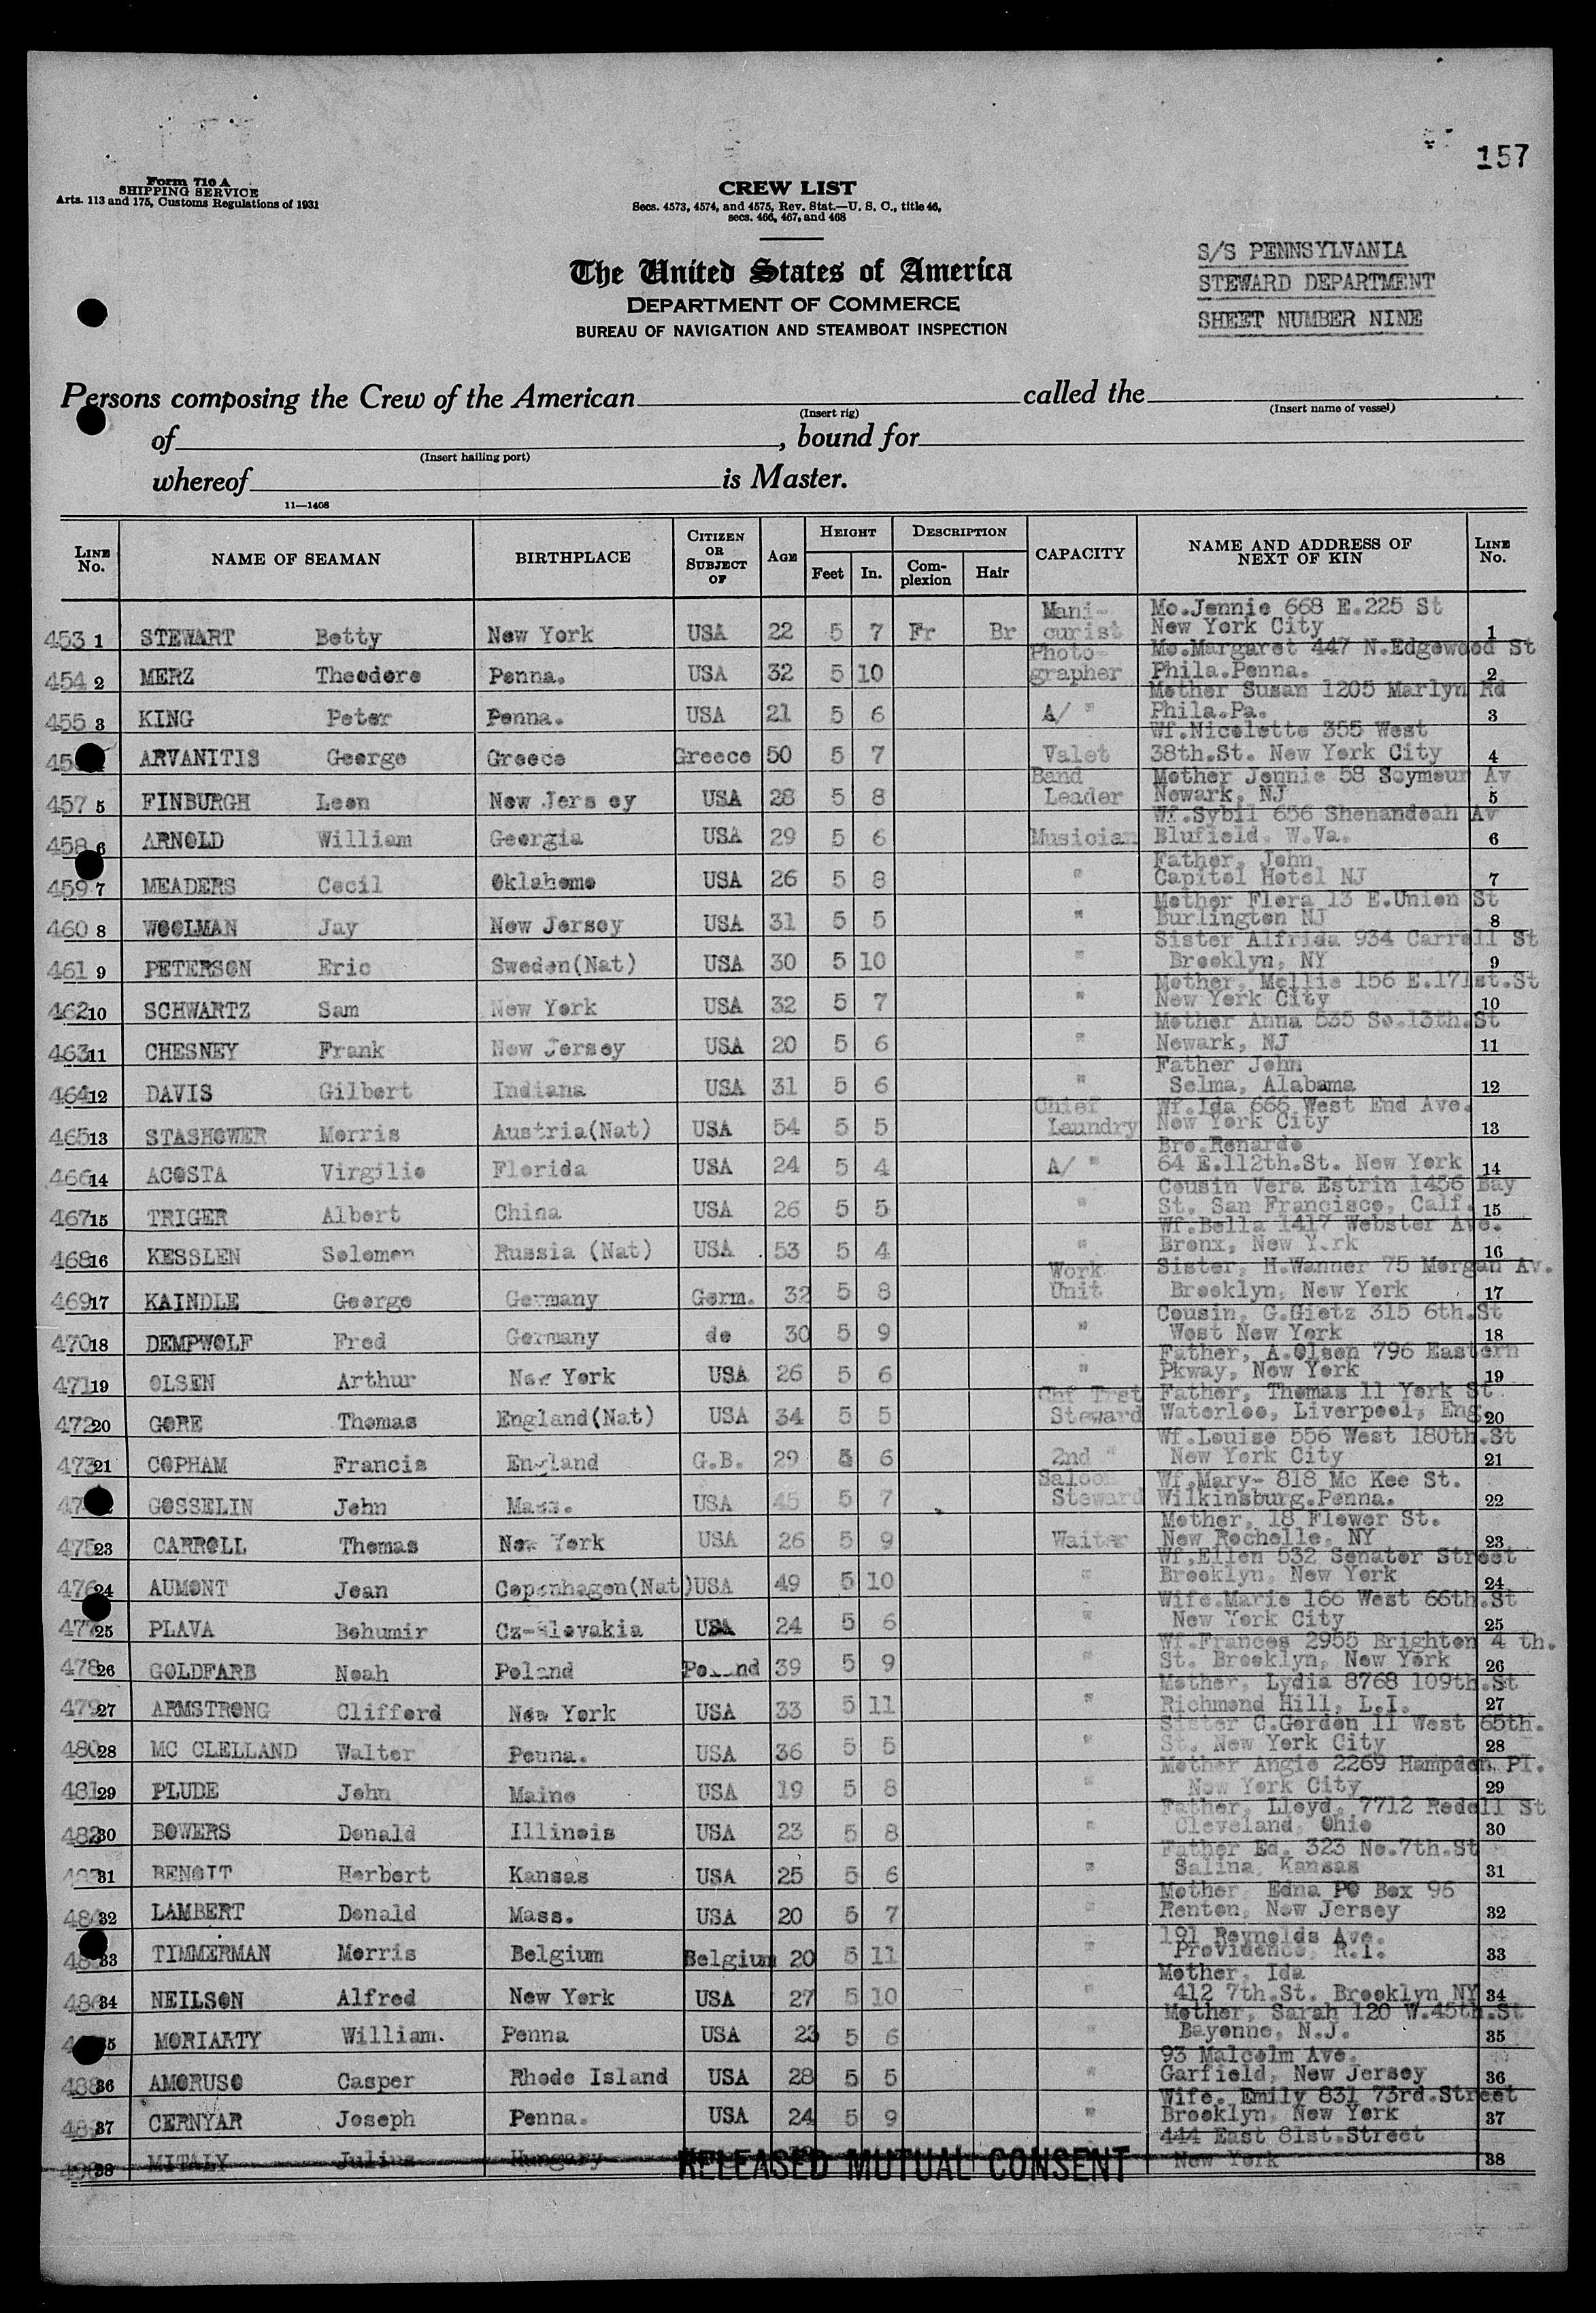 157
Form 710 A
SHIPPING SERVICE
Arts. 113 and 175, Customs Regulations of 1931
CREW LIST
Secs. 4573, 4574, and 4575, Rev. Stat.—U. S. C., title 46,
secs. 466, 467, and 468
The United States of America
DEPARTMENT OF COMMERCE
BUREAU OF NAVIGATION AND STEAMBOAT INSPECTION
S/S PENNSYLVANIA
STEWARD DEPARTMENT
SHEET NUMBER NINE
Persons composing the Crew of the American called the
(Insert rig) (Insert name of vessel)
of , bound for
(Insert hailing port)
whereof is Master.
11—1408
LINE No. NAME OF SEAMAN BIRTHPLACE CITIZEN OR SUBJECT OF AGE HEIGHT Feet In. DESCRIPTION Complexion Hair CAPACITY NAME AND ADDRESS OF NEXT OF KIN LINE No.
Mani- Mo.Jennie 668 E.225 St
453 1 STEWART Betty New York USA 22 5 7 Fr Br curist New York City 1
Photo- Mo.Margaret 447 N.Edgewood St
454 2 MERZ Theodore Penna. USA 32 5 10 grapher Phila.Penna. 2
Mother Susan 1205 Marlyn Rd
455 3 KING Peter Penna. USA 21 5 6 A/ " Phila.Pa. 3
Wf.Nicolette 355 West
45 ARVANITIS George Greece Greece 50 5 7 Valet 38th.St. New York City 4
Band Mother Jennie 58 Seymour Av
457 5 FINBURGH Leon New Jersey USA 28 5 8 Leader Newark, NJ 5
Wf.Sybil 656 Shenandoah Av
458 6 ARNOLD William Georgia USA 29 5 6 Musician Blufield, W.Va. 6
Father, John
459 7 MEADERS Cecil Oklahoma USA 26 5 8 " Capitol Hotel NJ 7
Mother Flora 13 E.Union St
460 8 WOOLMAN Jay New Jersey USA 31 5 5 " Burlington NJ 8
Sister Alfrida 934 Carroll St
461 9 PETERSON Eric Sweden(Nat) USA 30 5 10 " Brooklyn, NY 9
Mother, Mollie 156 E.171st.St
462 10 SCHWARTZ Sam New York USA 32 5 7 " New York City 10
Mother Anna 535 So.13th.St
463 11 CHESNEY Frank New Jersey USA 20 5 6 " Newark, NJ 11
Father John
464 12 DAVIS Gilbert Indiana USA 31 5 6 " Selma, Alabama 12
Chief Wf.Ida 666 West End Ave.
465 13 STASHOWER Morris Austria(Nat) USA 54 5 5 Laundry New York City 13
Bro.Renardo
466 14 ACOSTA Virgilio Florida USA 24 5 4 A/ " 64 E.112th.St. New York 14
Cousin Vera Estrin 1456 Bay
467 15 TRIGER Albert China USA 26 5 5 " St. San Francisco, Calf. 15
Wf.Bella 1417 Webster Ave.
468 16 KESSLEN Solomon Russia (Nat) USA 53 5 4 " Bronx, New York 16
Work Sister, H.Wanner 75 Morgan Av.
469 17 KAINDLE George Germany Germ. 32 5 8 Unit Brooklyn, New York 17
Cousin, G.Gietz 315 6th.St
470 18 DEMPWOLF Fred Germany do 30 5 9 " West New York 18
Father, A.Olsen 796 Eastern
471 19 OLSEN Arthur New York USA 26 5 6 " Pkway, New York 19
Chf Trst Father, Thomas 11 York St
472 20 GORE Thomas England(Nat) USA 34 5 5 Steward Waterloo, Liverpool, Eng. 20
Wf.Louise 556 West 180th.St
473 21 COPHAM Francis England G.B. 29 5 6 2nd " New York City 21
Saloon Wf.Mary- 818 Mc Kee St.
47 GOSSELIN John Mass. USA 45 5 7 Steward Wilkinsburg.Penna. 22
Mother, 18 Flower St.
475 23 CARROLL Thomas New York USA 26 5 9 Waiter New Rochelle, NY 23
Wf.Ellen 532 Senator Street
476 24 AUMONT Jean Copenhagen(Nat) USA 49 5 10 " Brooklyn, New York 24
Wife.Marie 166 West 66th.St
477 25 PLAVA Bohumir Cz-Slovakia USA 24 5 6 " New York City 25
Wf.Frances 2955 Brighton 4 th.
478 26 GOLDFARB Noah Poland Poland 39 5 9 " St. Brooklyn, New York 26
Mother, Lydia 8768 109th.St
479 27 ARMSTRONG Clifford New York USA 33 5 11 " Richmond Hill, L.I. 27
Sister C.Gordon 11 West 65th.
480 28 MC CLELLAND Walter Penna. USA 36 5 5 " St. New York City 28
Mother Angie 2269 Hampden Pl.
481 29 PLUDE John Maine USA 19 5 8 " New York City 29
Father, Lloyd, 7712 Redell St
482 30 BOWERS Donald Illinois USA 23 5 8 " Cleveland, Ohio 30
Father Ed. 323 No.7th.St
31 BENOIT Herbert Kansas USA 25 5 6 " Salina, Kansas 31
Mother, Edna PO Box 96
484 32 LAMBERT Donald Mass. USA 20 5 7 " Renton, New Jersey 32
191 Reynolds Ave.
48 33 TIMMERMAN Morris Belgium Belgium 20 5 11 " Providence, R.I. 33
Mother, Ida
486 34 NEILSON Alfred New York USA 27 5 10 " 412 7th.St. Brooklyn NY 34
Mother, Sarah 120 W.45th.St
4 5 MORIARTY William. Penna USA 23 5 6 " Bayonne, N.J. 35
93 Malcolm Ave.
488 36 AMORUSO Casper Rhode Island USA 28 5 5 " Garfield, New Jersey 36
Wife. Emily 831 73rd.Street
489 37 CERNYAR Joseph Penna. USA 24 5 9 " Brooklyn, New York 37
444 East 81st.Street
38 MITALY Julius Hungary RELEASED MUTUAL CONSENT New York 38